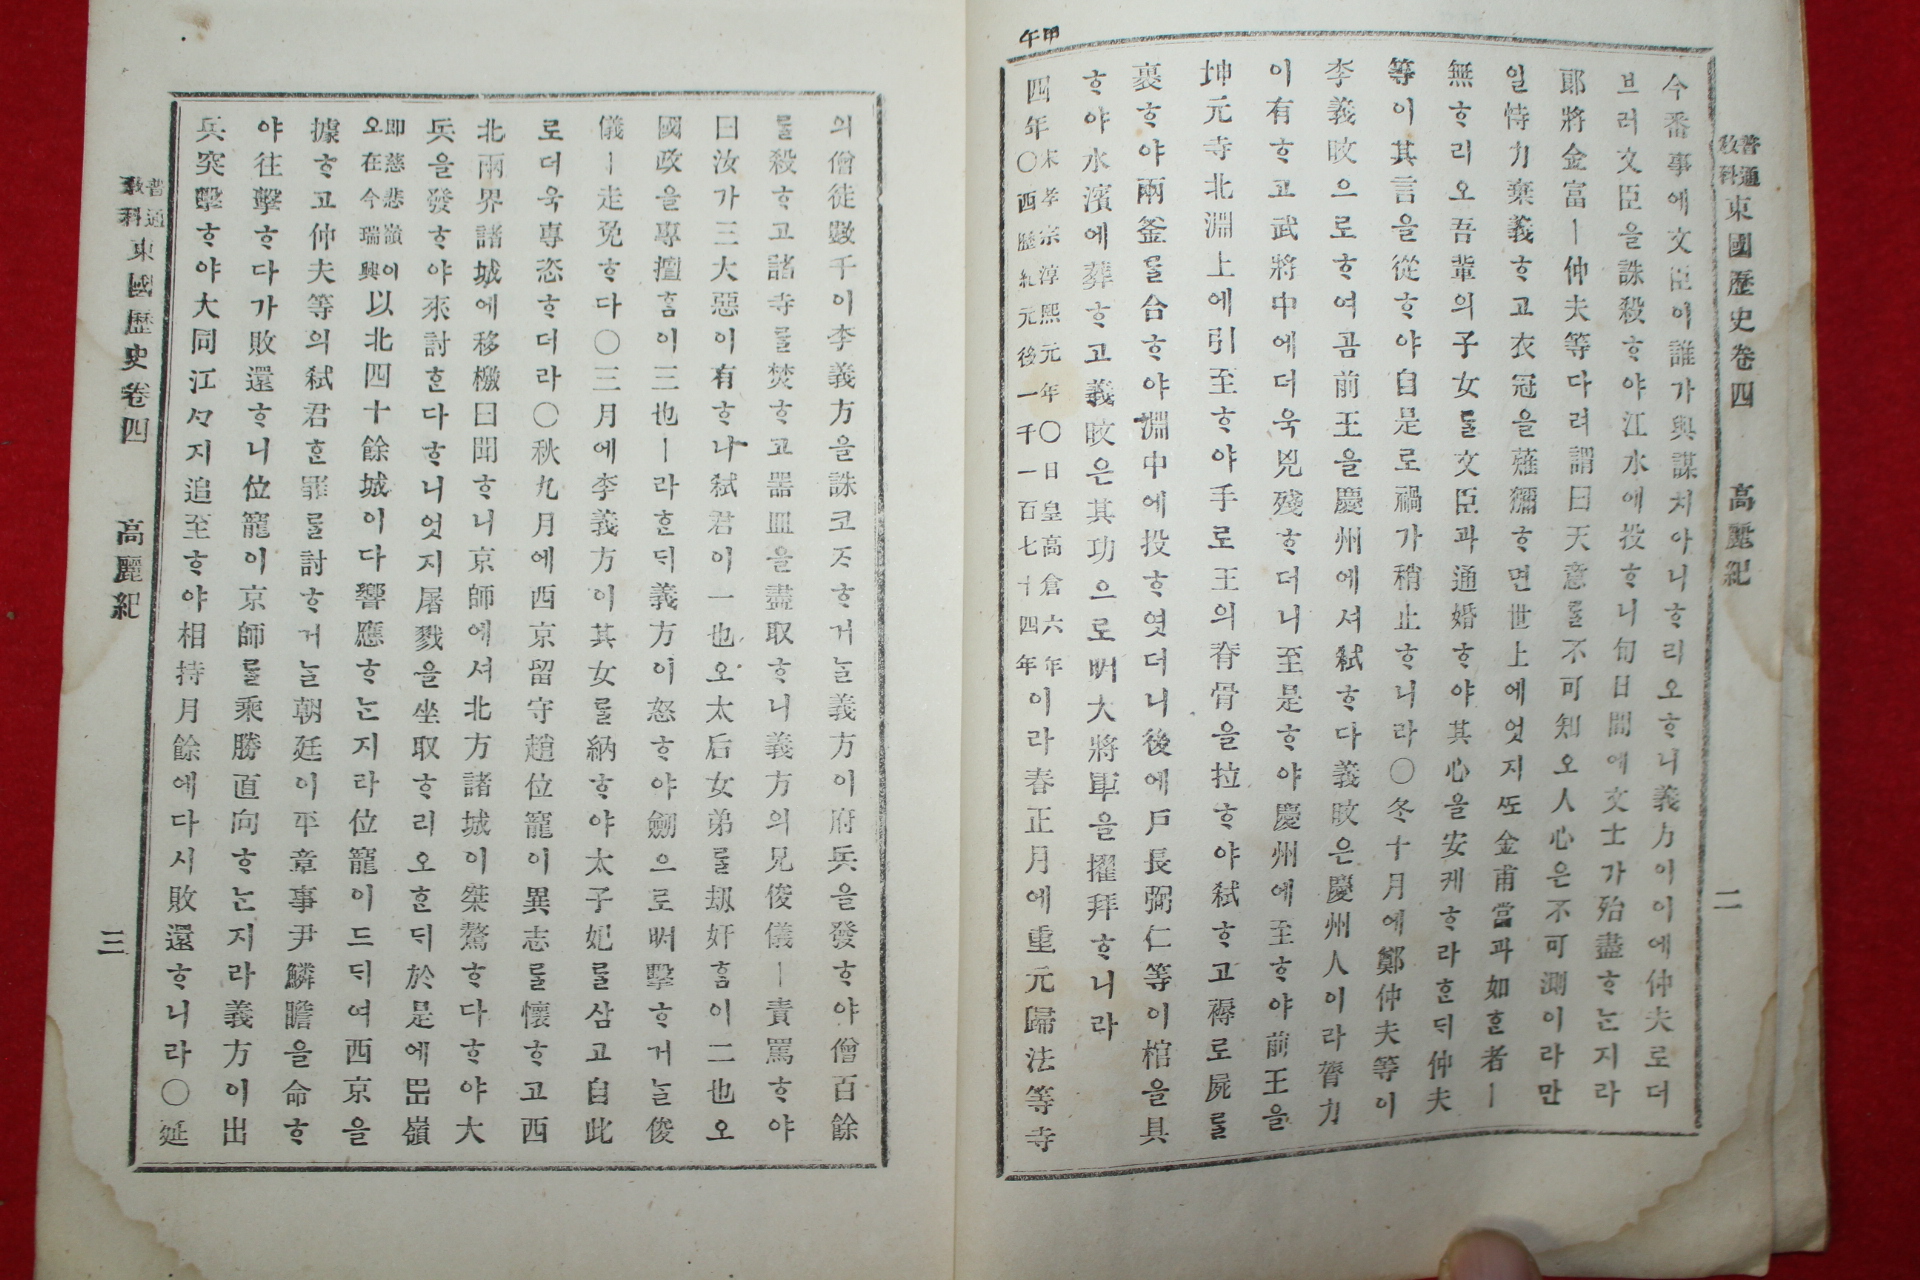 普通
教科
東國歷史卷四 高麗紀 二
今番事에文臣이誰가與謀치아니ᄒᆞ리오ᄒᆞ니義方이이에仲夫로더
브러文臣을誅殺ᄒᆞ야江水에投ᄒᆞ니旬日間에文士가殆盡ᄒᆞᄂᆞᆫ지라
郞將金富ㅣ仲夫等다려謂曰天意를不可知오人心은不可測이라만
일恃力棄義ᄒᆞ고衣冠을薙獮ᄒᆞ면世上에엇지ᄯᅩ金甫當과如ᄒᆞᆫ者ㅣ
無ᄒᆞ리오吾輩의子女를文臣과通婚ᄒᆞ야其心을安케ᄒᆞ라ᄒᆞᆫᄃᆡ仲夫
等이其言을從ᄒᆞ야自是로禍가稍止ᄒᆞ니라〇冬十月에鄭仲夫等이
李義旼으로ᄒᆞ여곰前王을慶州에셔弑ᄒᆞ다義旼은慶州人이라膂力
이有ᄒᆞ고武將中에더욱兇殘ᄒᆞ더니至是ᄒᆞ야慶州에至ᄒᆞ야前王을
坤元寺北淵上에引至ᄒᆞ야手로王의脊骨을拉ᄒᆞ야弑ᄒᆞ고褥로屍를
裹ᄒᆞ야兩釜를合ᄒᆞ야淵中에投ᄒᆞ엿더니後에戶長弼仁等이棺을具
ᄒᆞ야水濱에葬ᄒᆞ고義旼은其功으로明大將軍을擢拜ᄒᆞ니라
甲午
四年〇宋孝宗淳熙元年〇日皇高倉六年西曆紀元後一千一百七十四年이라春正月에重元歸法等寺
의僧徒數千이李義方을誅코ᄌᆞᄒᆞ거ᄂᆞᆯ義方이府兵을發ᄒᆞ야僧百餘
를殺ᄒᆞ고諸寺를焚ᄒᆞ고器皿을盡取ᄒᆞ니義方의兄俊儀ㅣ責罵ᄒᆞ야
曰汝가三大惡이有ᄒᆞ나弑君이一也오太后女弟를刼奸ᄒᆞᆷ이二也오
國政을專擅ᄒᆞᆷ이三也ㅣ라ᄒᆞᆫᄃᆡ義方이怒ᄒᆞ야劒으로明擊ᄒᆞ거ᄂᆞᆯ俊
儀ㅣ走免ᄒᆞ다〇三月에李義方이其女를納ᄒᆞ야太子妃를삼고自此
로더욱專恣ᄒᆞ더라〇秋九月에西京留守趙位寵이異志를懷ᄒᆞ고西
北兩界諸城에移檄曰聞ᄒᆞ니京師에셔北方諸城이桀驁ᄒᆞ다ᄒᆞ야大
兵을發ᄒᆞ야來討ᄒᆞᆫ다ᄒᆞ니엇지屠戮을坐取ᄒᆞ리오ᄒᆞᆫᄃᆡ於是에岊嶺
即慈悲嶺이오在今瑞興以北四十餘城이다響應ᄒᆞᄂᆞᆫ지라位寵이드ᄃᆡ여西京을
據ᄒᆞ고仲夫等의弑君ᄒᆞᆫ罪를討ᄒᆞ거ᄂᆞᆯ朝廷이平章事尹鱗瞻을命ᄒᆞ
야往擊ᄒᆞ다가敗還ᄒᆞ니位寵이京師를乘勝直向ᄒᆞᄂᆞᆫ지라義方이出
兵突擊ᄒᆞ야大同江ᄭᆞ지追至ᄒᆞ야相持月餘에다시敗還ᄒᆞ니라〇延
普通
教科
東國歷史卷四 高麗紀 三